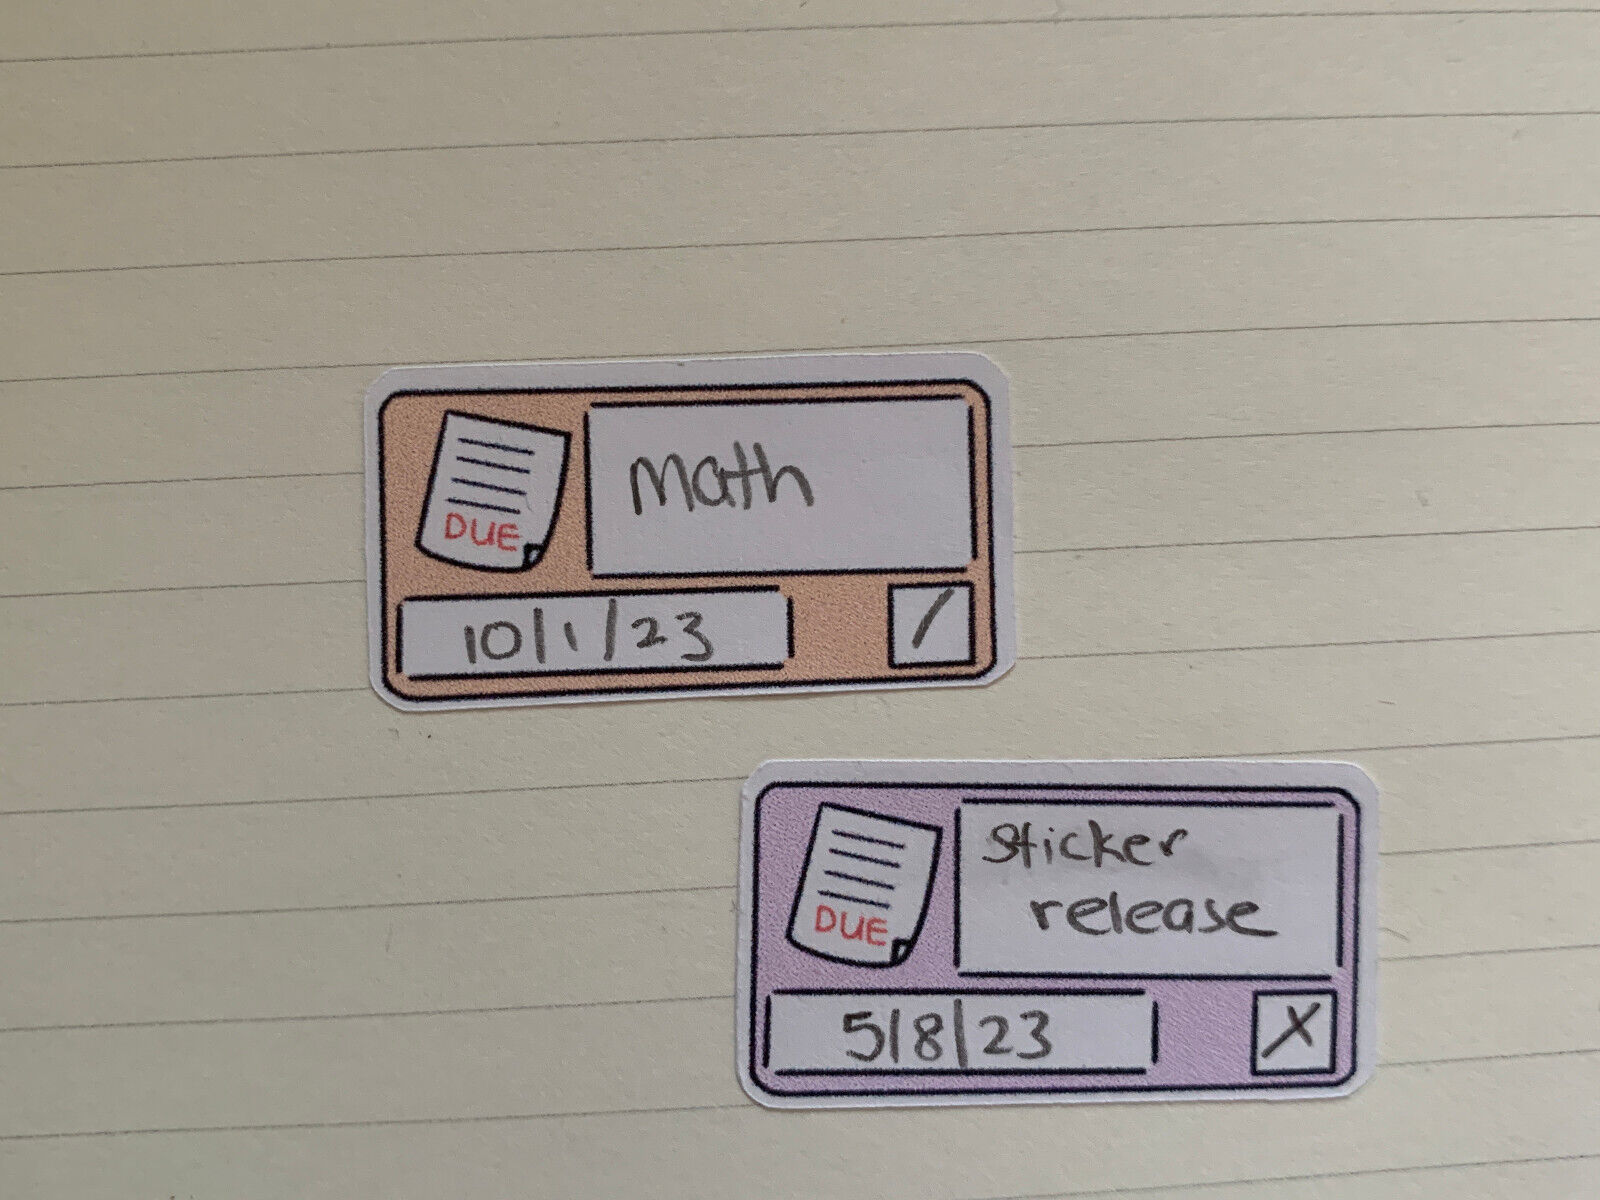 math
DUE
10/1/23
sticker
release
DUE
5/8/23